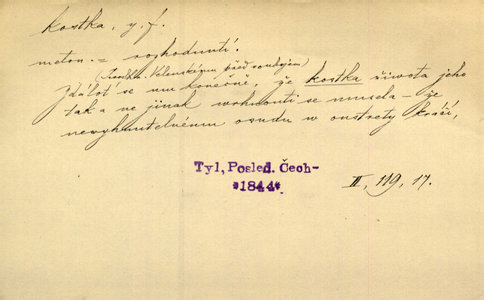 kostka, y. f.
meton. = rozhodnutí.
(Frant. Velenskému před soubojem)
Zdálot' se mu konečně, že kostka života jeho
tak a ne jinak vrhnouti se musela – že
nevyhnutelnému osudu v oustrety kráčí,
Tyl, Posled. Čech-
*1844*
II, 119, 17.